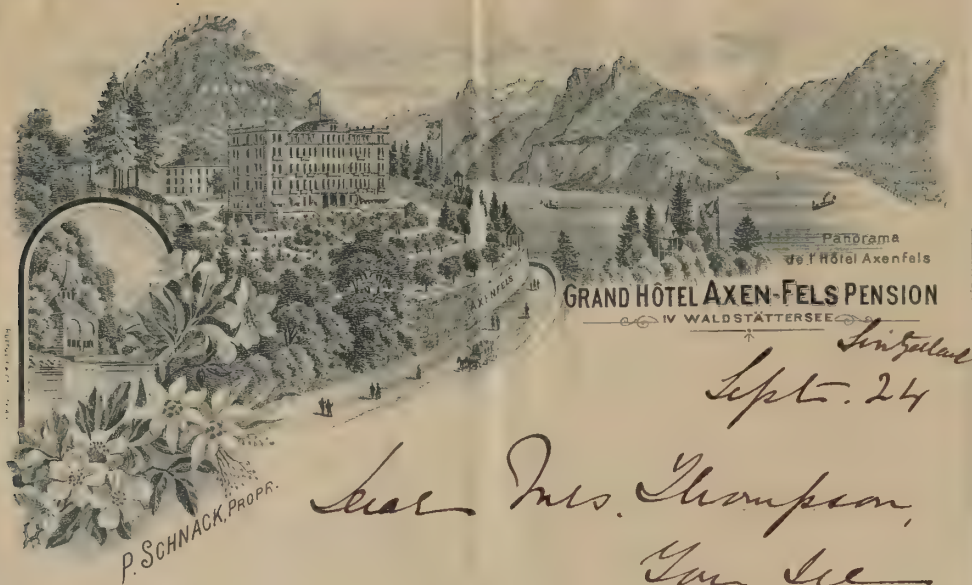 Panorama
de l'Hôtel Axenfels
AXENFELS
GRAND HÔTEL AXEN-FELS PENSION
IV WALDSTÄTTERSEE
Switzerland
Sept. 24
P. SCHNACK, PROPR.
Dear Mrs. Thompson,
You see